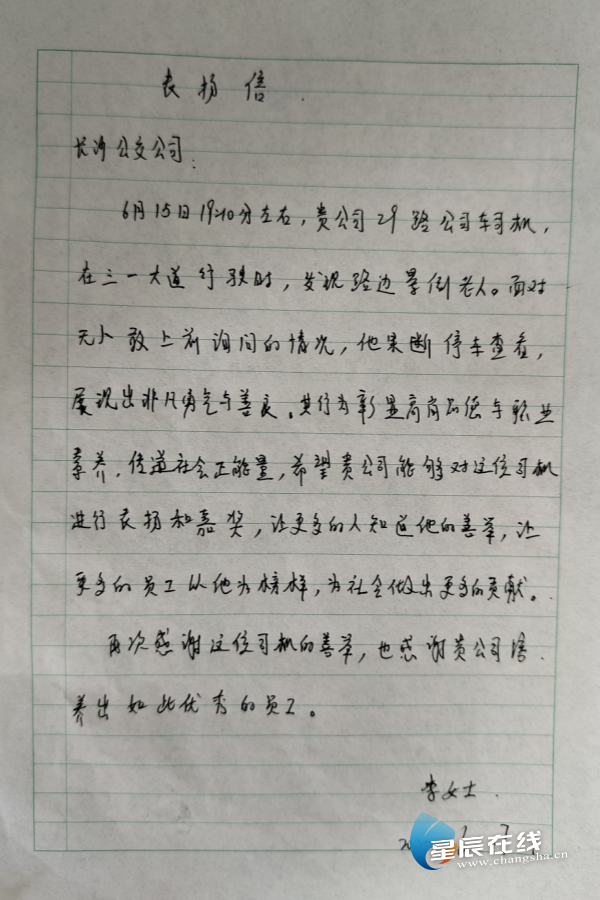 表扬信
长沙公交公司:
6月15日19:10分左右,贵公司29路公司车司机,
在三一大道行驶时,发现路边晕倒老人。面对
无人敢上前询问的情况,他果断停车查看,
展现出非凡勇气与善良。其行为彰显高尚品德与职业
素养,传递社会正能量,希望贵公司能够对这位司机
进行表扬和嘉奖,让更多的人知道他的善举,让
更多的员工以他为榜样,为社会做出更多的贡献。
再次感谢这位司机的善举,也感谢贵公司培
养出如此优秀的员工。
李女士
星辰在线
www.changsha.cn